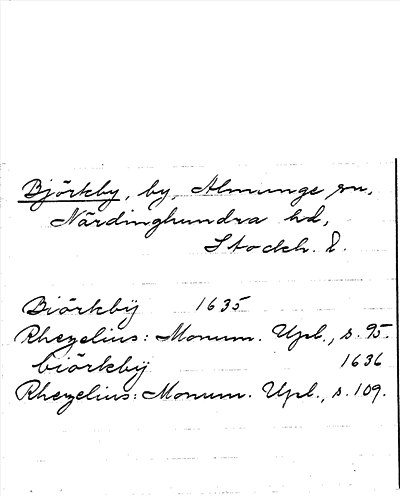 Björkby, by, Almunge sn,
Närdinghundra hd,
Stockh. l.
Biörkbÿ 1635
Rhezelius: Monum. Upl., s. 95.
biörkbÿ 1636
Rhezelius: Monum. Upl., s. 109.